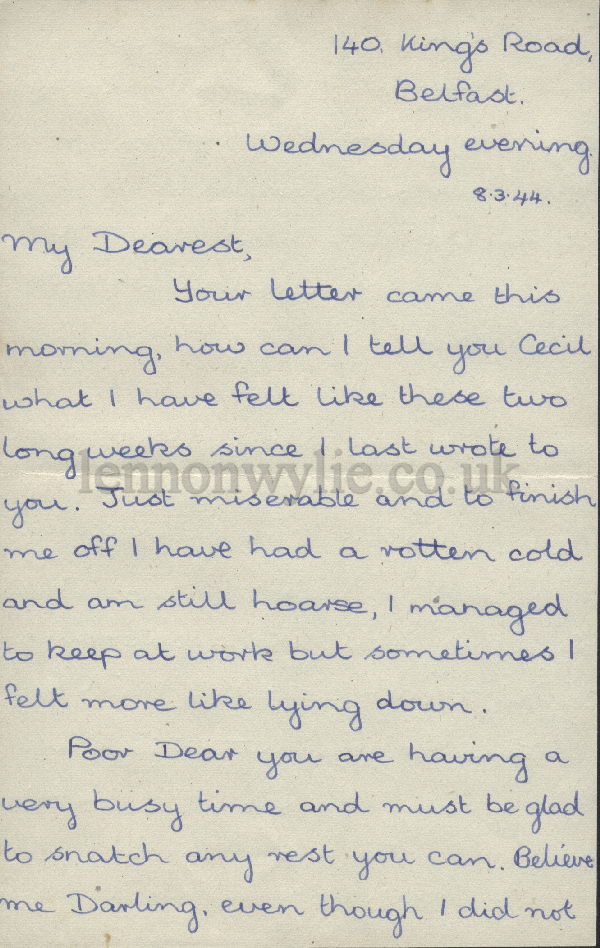 140, King's Road,
Belfast.
Wednesday evening.
8.3.44.
My Dearest,
Your letter came this
morning, how can I tell you Cecil
what I have felt like these two
long weeks since I last wrote to
lennonwylie.co.uk
you. Just miserable and to finish
me off I have had a rotten cold
and am still hoarse, I managed
to keep at work but sometimes I
felt more like lying down.
Poor Dear you are having a
very busy time and must be glad
to snatch any rest you can. Believe
me Darling, even though I did not